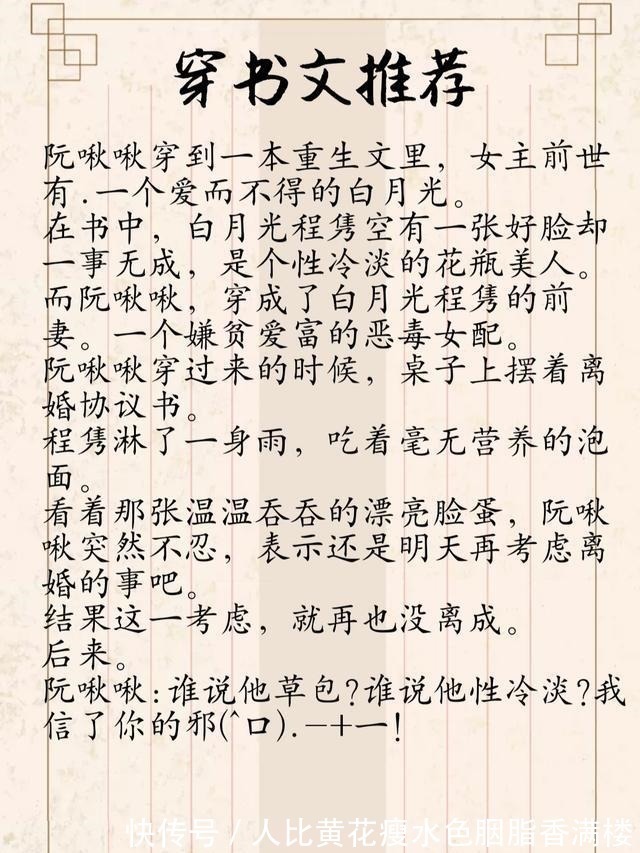 穿书文推荐
阮啾啾穿到一本重生文里，女主前世
有.一个爱而不得的白月光。
在书中，白月光程隽空有一张好脸却
一事无成，是个性冷淡的花瓶美人。
而阮啾啾，穿成了白月光程隽的前
妻。一个嫌贫爱富的恶毒女配。
阮啾啾穿过来的时候，桌子上摆着离
婚协议书。
程隽淋了一身雨，吃着毫无营养的泡
面。
看着那张温温吞吞的漂亮脸蛋，阮啾
啾突然不忍，表示还是明天再考虑离
婚的事吧。
结果这一考虑，就再也没离成。
后来。
阮啾啾:谁说他草包?谁说他性冷淡?我
信了你的邪(^口).—+一!
快传号 / 人比黄花瘦水色胭脂香满楼